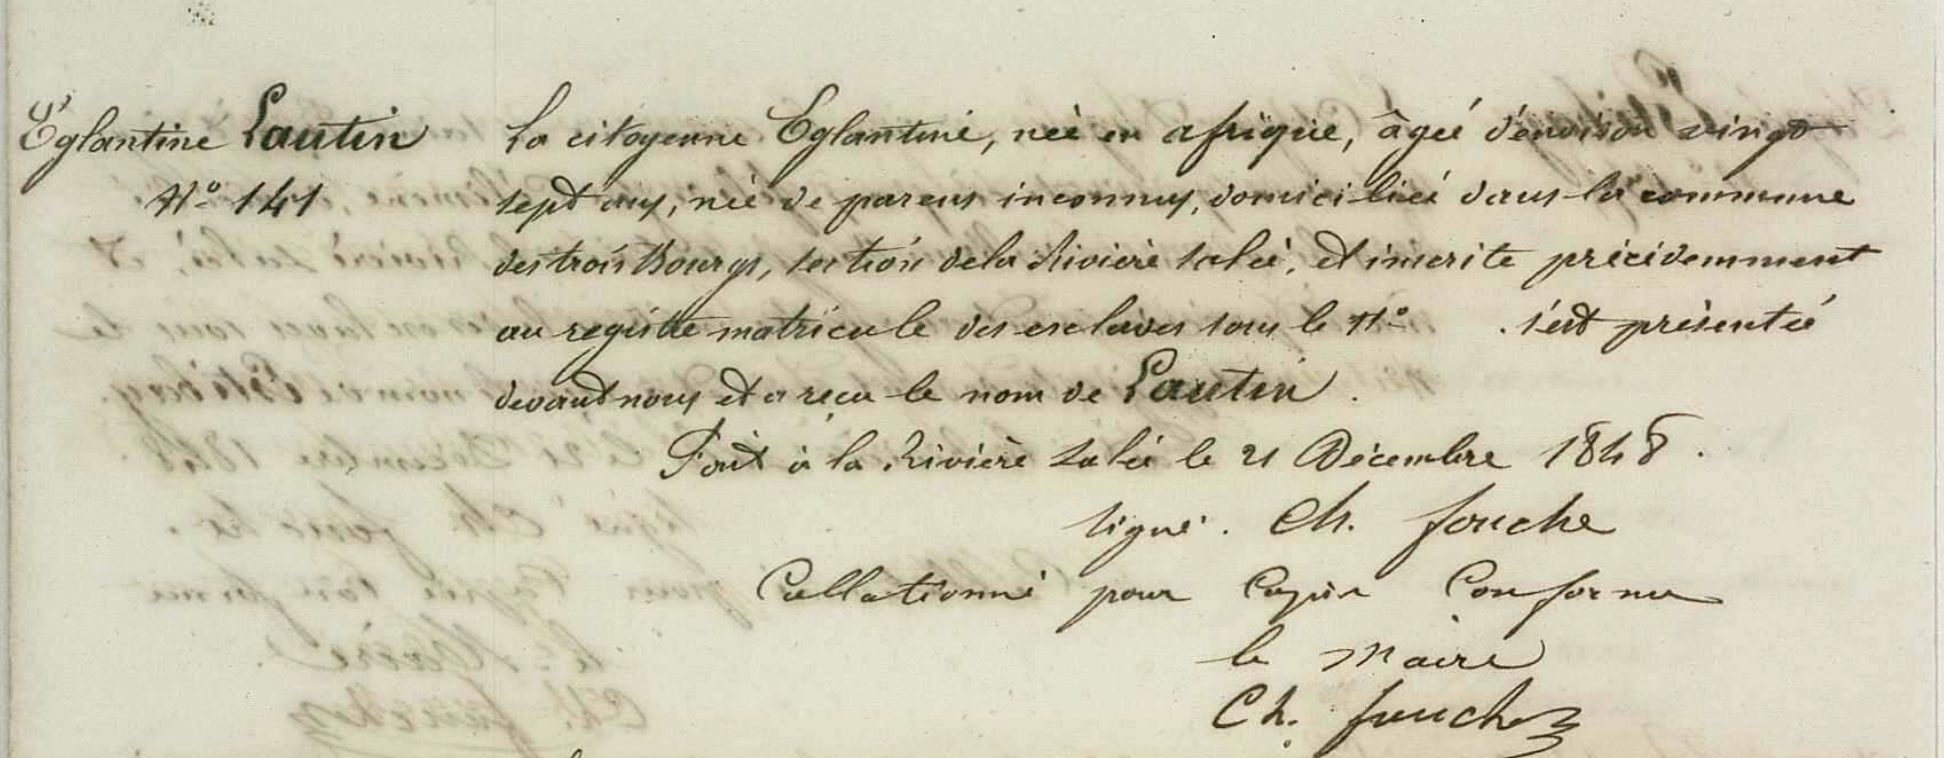 Eglantine Lautin
N° 141
La citoyenne Eglantine, née en afrique, âgée d'environ vingt
sept ans, née de parens inconnus, domiciliée dans la commune
des trois Bourgs, section de la Rivière salée, et inscrite précédemment
au registre matricule des esclaves sous le N° . s'est présentée
devant nous et a reçu le nom de Lautin.
Fait à la Rivière Salée le 21 Décembre 1848.
signé. Ch. fouche
Collationné pour Copie Conforme
le Maire
Ch. fouche